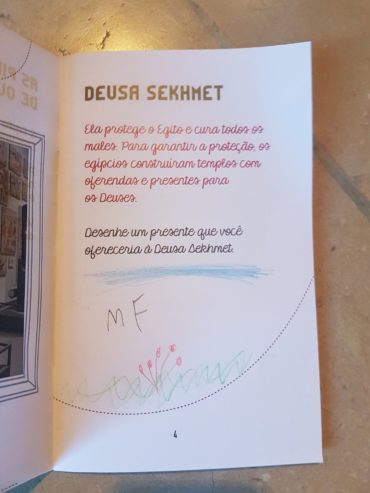 DEUSA SEKHMET
Ela protege o Egito e cura todos os
males. Para garantir a proteção, os
egípcios construíram templos com
oferendas e presentes para
os Deuses.
Desenhe um presente que você
ofereceria à Deusa Sekhmet.
MF
4